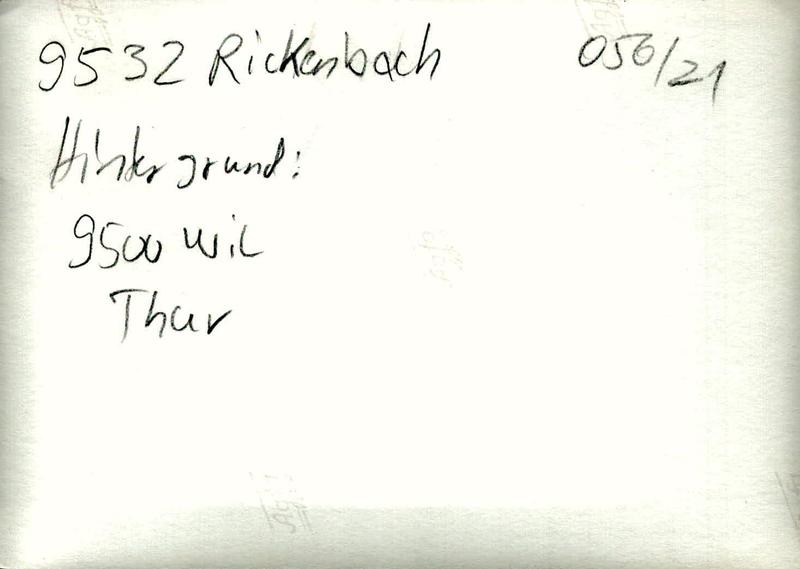 9532 Rickenbach 056/21
Hintergrund:
9500 Wil
Thur